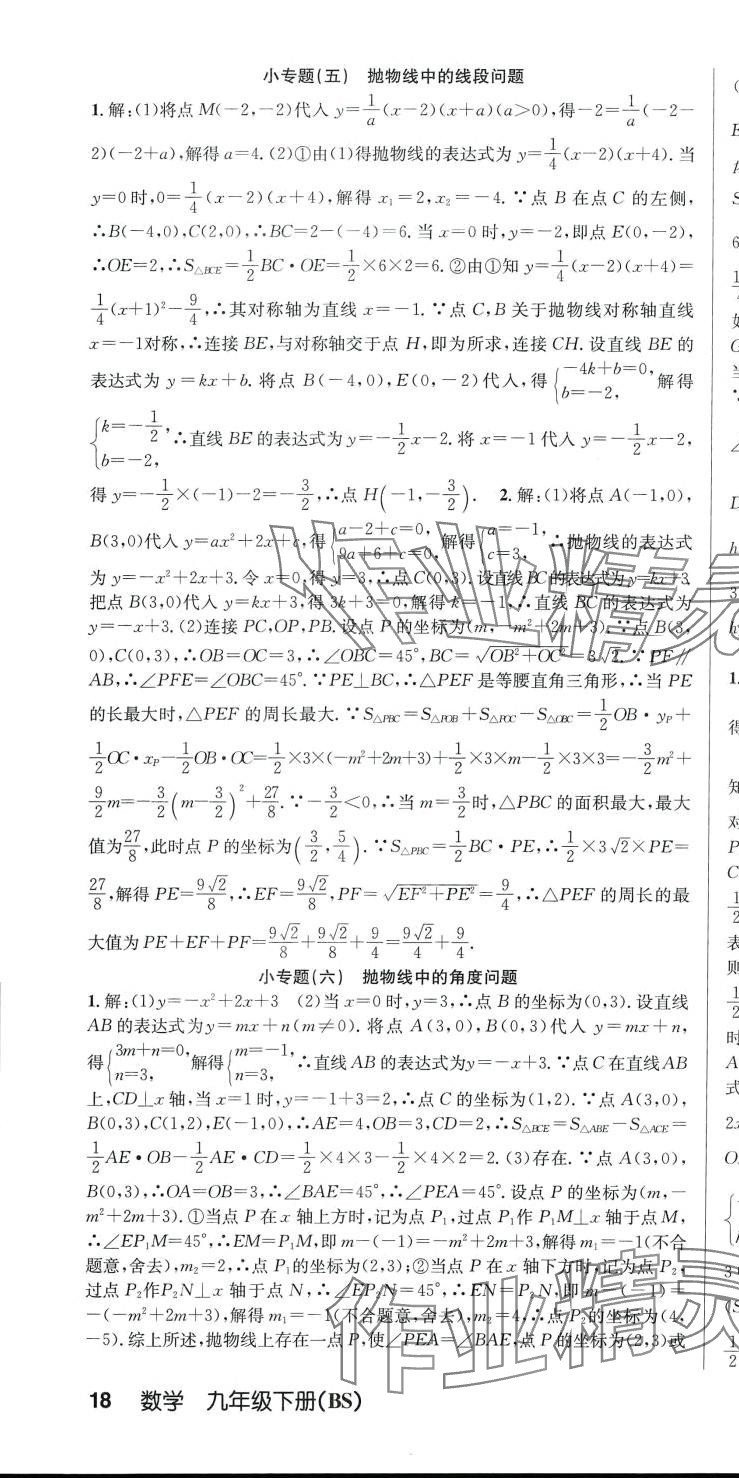 小专题(五) 抛物线中的线段问题
1.解:(1)将点 M(-2,-2)代入 y=1/a(x-2)(x+a)(a>0),得-2=1/a(-2-
2)(-2+a),解得 a=4.(2)①由(1)得抛物线的表达式为 y=1/4(x-2)(x+4).当
y=0 时,0=1/4(x-2)(x+4),解得 x₁=2,x₂=-4.∵点 B 在点 C 的左侧,
∴B(-4,0),C(2,0),∴BC=2-(-4)=6.当 x=0 时,y=-2,即点 E(0,-2),
∴OE=2,∴S△BCE=1/2BC·OE=1/2×6×2=6.②由①知 y=1/4(x-2)(x+4)=
1/4(x+1)²-9/4,∴其对称轴为直线 x=-1.∵点 C,B 关于抛物线对称轴直线
x=-1对称,∴连接 BE,与对称轴交于点 H,即为所求,连接 CH.设直线 BE 的
表达式为 y=kx+b.将点 B(-4,0),E(0,-2)代入,得{-4k+b=0, b=-2,解得
{k=-1/2, b=-2,∴直线 BE 的表达式为 y=-1/2x-2.将 x=-1 代入 y=-1/2x-2,
得 y=-1/2×(-1)-2=-3/2,∴点 H(-1,-3/2). 2.解:(1)将点 A(-1,0),
B(3,0)代入 y=ax²+2x+c,得{a-2+c=0, 9a+6+c=0,解得{a=-1, c=3,∴抛物线的表达式
为 y=-x²+2x+3.令 x=0,得 y=3,∴点 C(0,3).设直线 BC 的表达式为 y=kx+3.
把点 B(3,0)代入 y=kx+3,得 3k+3=0,解得 k=-1,∴直线 BC 的表达式为
y=-x+3.(2)连接 PC,OP,PB.设点 P 的坐标为(m,-m²+2m+3).∵点 B(3,
0),C(0,3),∴OB=OC=3,∴∠OBC=45°,BC=√(OB²+OC²)=3√2.∵PF∥
AB,∴∠PFE=∠OBC=45°.∵PE⊥BC,∴△PEF 是等腰直角三角形,∴当 PE
的长最大时,△PEF 的周长最大.∵S△PBC=S△POB+S△POC-S△OBC=1/2OB·yP+
1/2OC·xP-1/2OB·OC=1/2×3×(-m²+2m+3)+1/2×3×m-1/2×3×3=-3/2m²+
9/2m=-3/2(m-3/2)²+27/8.∵-3/2<0,∴当 m=3/2时,△PBC 的面积最大,最大
值为27/8,此时点 P 的坐标为(3/2,5/4).∵S△PBC=1/2BC·PE,∴1/2×3√2×PE=
27/8,解得 PE=9√2/8,∴EF=9√2/8,PF=√(EF²+PE²)=9/4,∴△PEF 的周长的最
大值为 PE+EF+PF=9√2/8+9√2/8+9/4=9√2/4+9/4.
小专题(六) 抛物线中的角度问题
1.解:(1)y=-x²+2x+3 (2)当 x=0 时,y=3,∴点 B 的坐标为(0,3).设直线
AB 的表达式为y=mx+n(m≠0).将点 A(3,0),B(0,3)代入 y=mx+n,
得{3m+n=0, n=3,解得{m=-1, n=3,∴直线 AB 的表达式为y=-x+3.∵点 C 在直线AB
上,CD⊥x 轴,当 x=1 时,y=-1+3=2,∴点 C 的坐标为(1,2).∵点 A(3,0),
B(0,3),C(1,2),E(-1,0),∴AE=4,OB=3,CD=2,∴S△BCE=S△ABE-S△ACE=
1/2AE·OB-1/2AE·CD=1/2×4×3-1/2×4×2=2.(3)存在.∵点 A(3,0),
B(0,3),∴OA=OB=3,∴∠BAE=45°,∴∠PEA=45°.设点 P 的坐标为(m,-
m²+2m+3).①当点 P 在 x 轴上方时,记为点 P₁,过点 P₁作 P₁M⊥x 轴于点 M,
∴∠EP₁M=45°,∴EM=P₁M,即 m-(-1)=-m²+2m+3,解得 m₁=-1(不合
题意,舍去),m₂=2,∴点 P₁的坐标为(2,3);②当点 P 在 x 轴下方时,记为点 P₂,
过点 P₂作P₂N⊥x 轴于点 N,∴∠EP₂N=45°,∴EN=P₂N,即 m-(-1)=
-(-m²+2m+3),解得 m₁=-1(不合题意,舍去),m₂=4,∴点 P₂的坐标为(4,
-5).综上所述,抛物线上存在一点 P,使∠PEA=∠BAE,点 P 的坐标为(2,3)或
18 数学 九年级下册(BS)
作业精灵
作业精灵